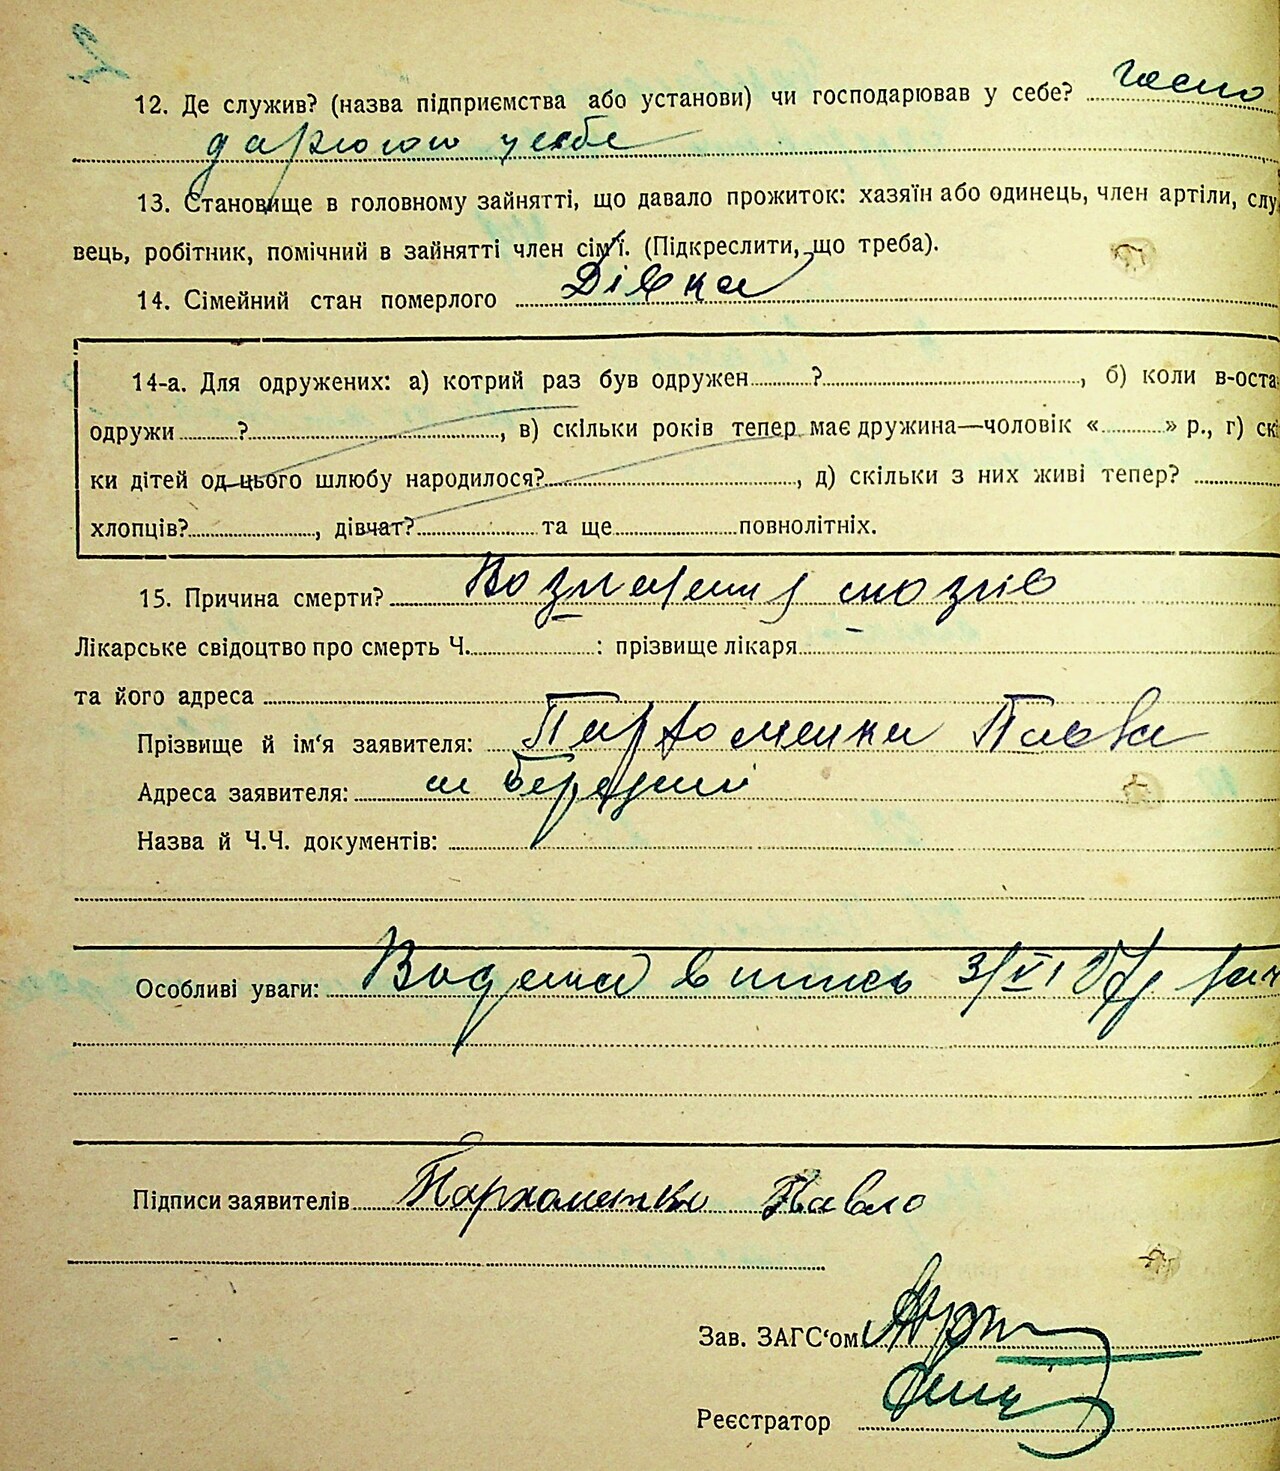 2
12. Де служив? (назва підприємства або установи) чи господарював у себе? госпо
дарюють у себе
13. Становище в головному зайнятті, що давало прожиток: хазяїн або одинець, член артіли, слу
вець, робітник, помічний в зайнятті член сім'ї. (Підкреслити, що треба).
14. Сімейний стан померлого Дівка
14-а. Для одружених: а) котрий раз був одружен..........?.........., б) коли в-оста
одружи..........?.........., в) скільки років тепер має дружина—чоловік «..........» р., г) скі
ки дітей од цього шлюбу народилося?.........., д) скільки з них живі тепер? ..........
хлопців?.........., дівчат?.......... та ще..........повнолітніх.
15. Причина смерти? мозгів
Лікарське свідоцтво про смерть Ч...........: прізвище лікаря..........
та його адреса ..........
Прізвище й ім'я заявителя: Пархоменко Павла
Адреса заявителя:
Назва й Ч.Ч. документів: ..........
Особливі уваги: Видана випись 3/VI 27р
Підписи заявителів Пархоменко Павло
Зав. ЗАГС'ом
Реєстратор